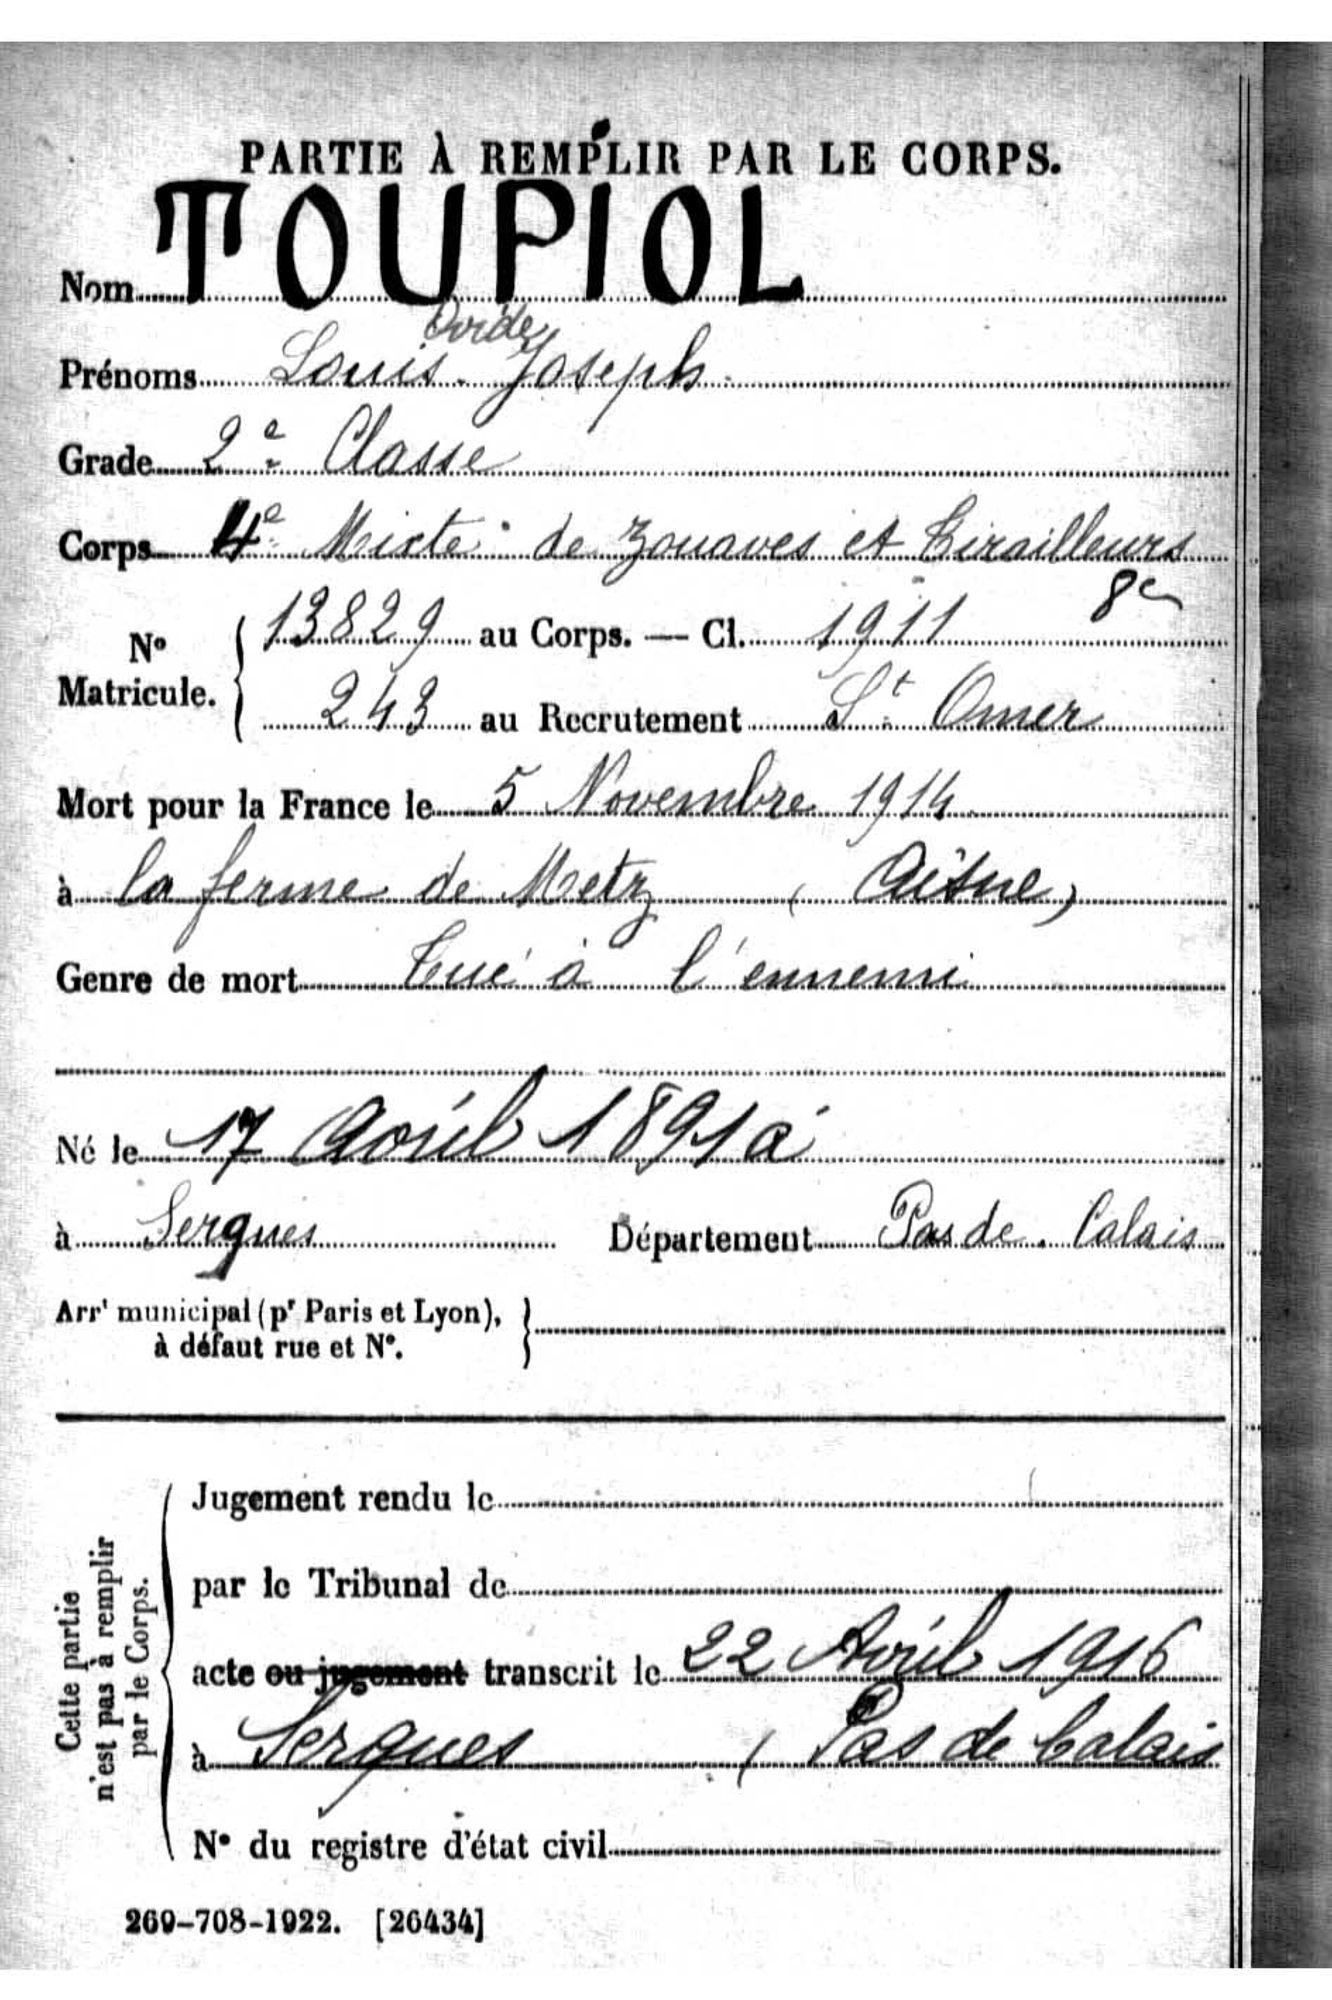 PARTIE À REMPLIR PAR LE CORPS.
Nom TOUPIOL
Ovide
Prénoms Louis Joseph
Grade 2e Classe
Corps 4e Mixte de Zouaves et Tirailleurs
8e
13829 au Corps. — Cl. 1911
No Matricule.
243 au Recrutement St Omer
Mort pour la France le 5 Novembre 1914
à la ferme de Metz (Aisne)
Genre de mort Tué à l'ennemi
Né le 17 Avril 1891 à
à Serques Département Pas de Calais
Arrt municipal (pr Paris et Lyon),
à défaut rue et No.
Cette partie
n'est pas à remplir
par le Corps.
Jugement rendu le
par le Tribunal de
acte ou jugement transcrit le 22 Avril 1916
à Serques ( Pas de Calais
No du registre d'état civil
269-708-1922. [26434]